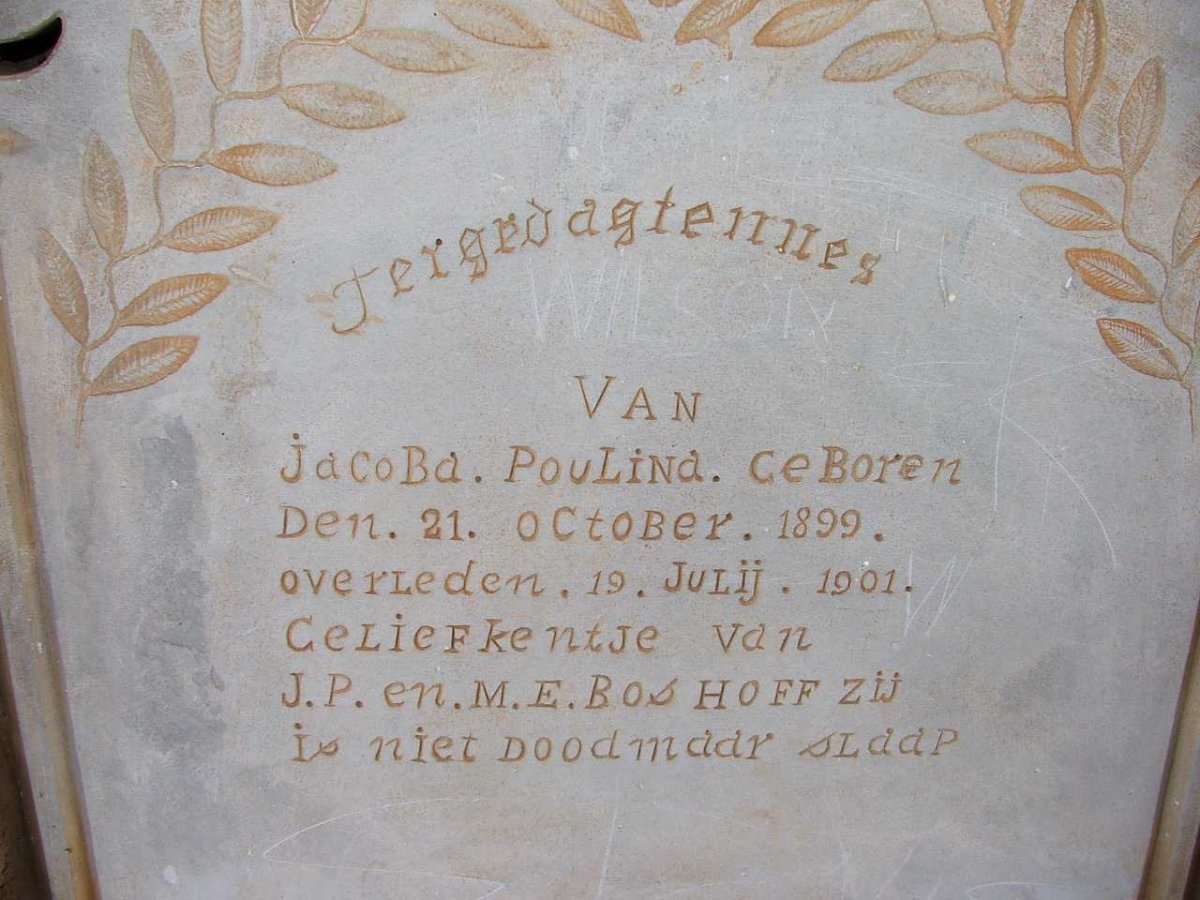 Tergedagtennes
WILSON
VAN
JacoBa. PouLiNa. GeBoren
Den. 21. OCtoBer. 1899.
overLeden. 19. JuLij. 1901.
GeLiefkentJe van
J.P. en. M.E. Bos HOFF zij
is niet Dood maar sLaap